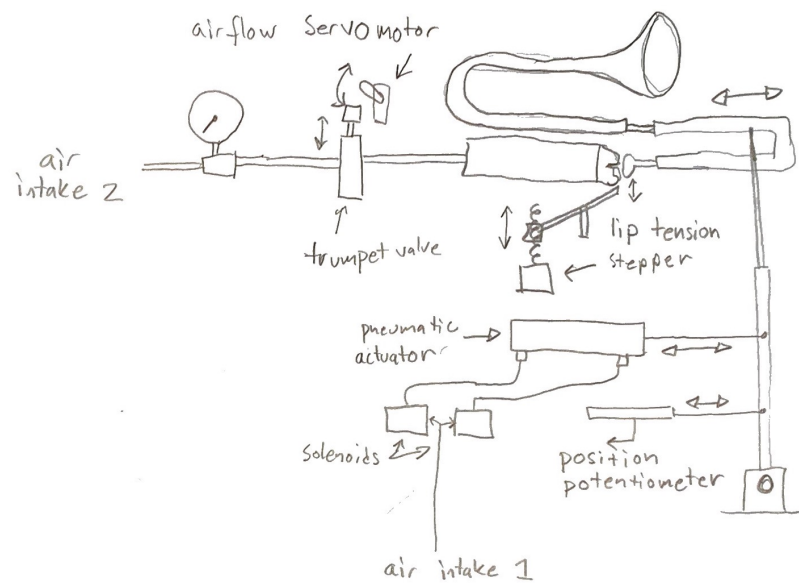 airflow Servo motor
air
intake 2
trumpet valve
lip tension
stepper
pneumatic
actuator
Solenoids
position
potentiometer
air intake 1